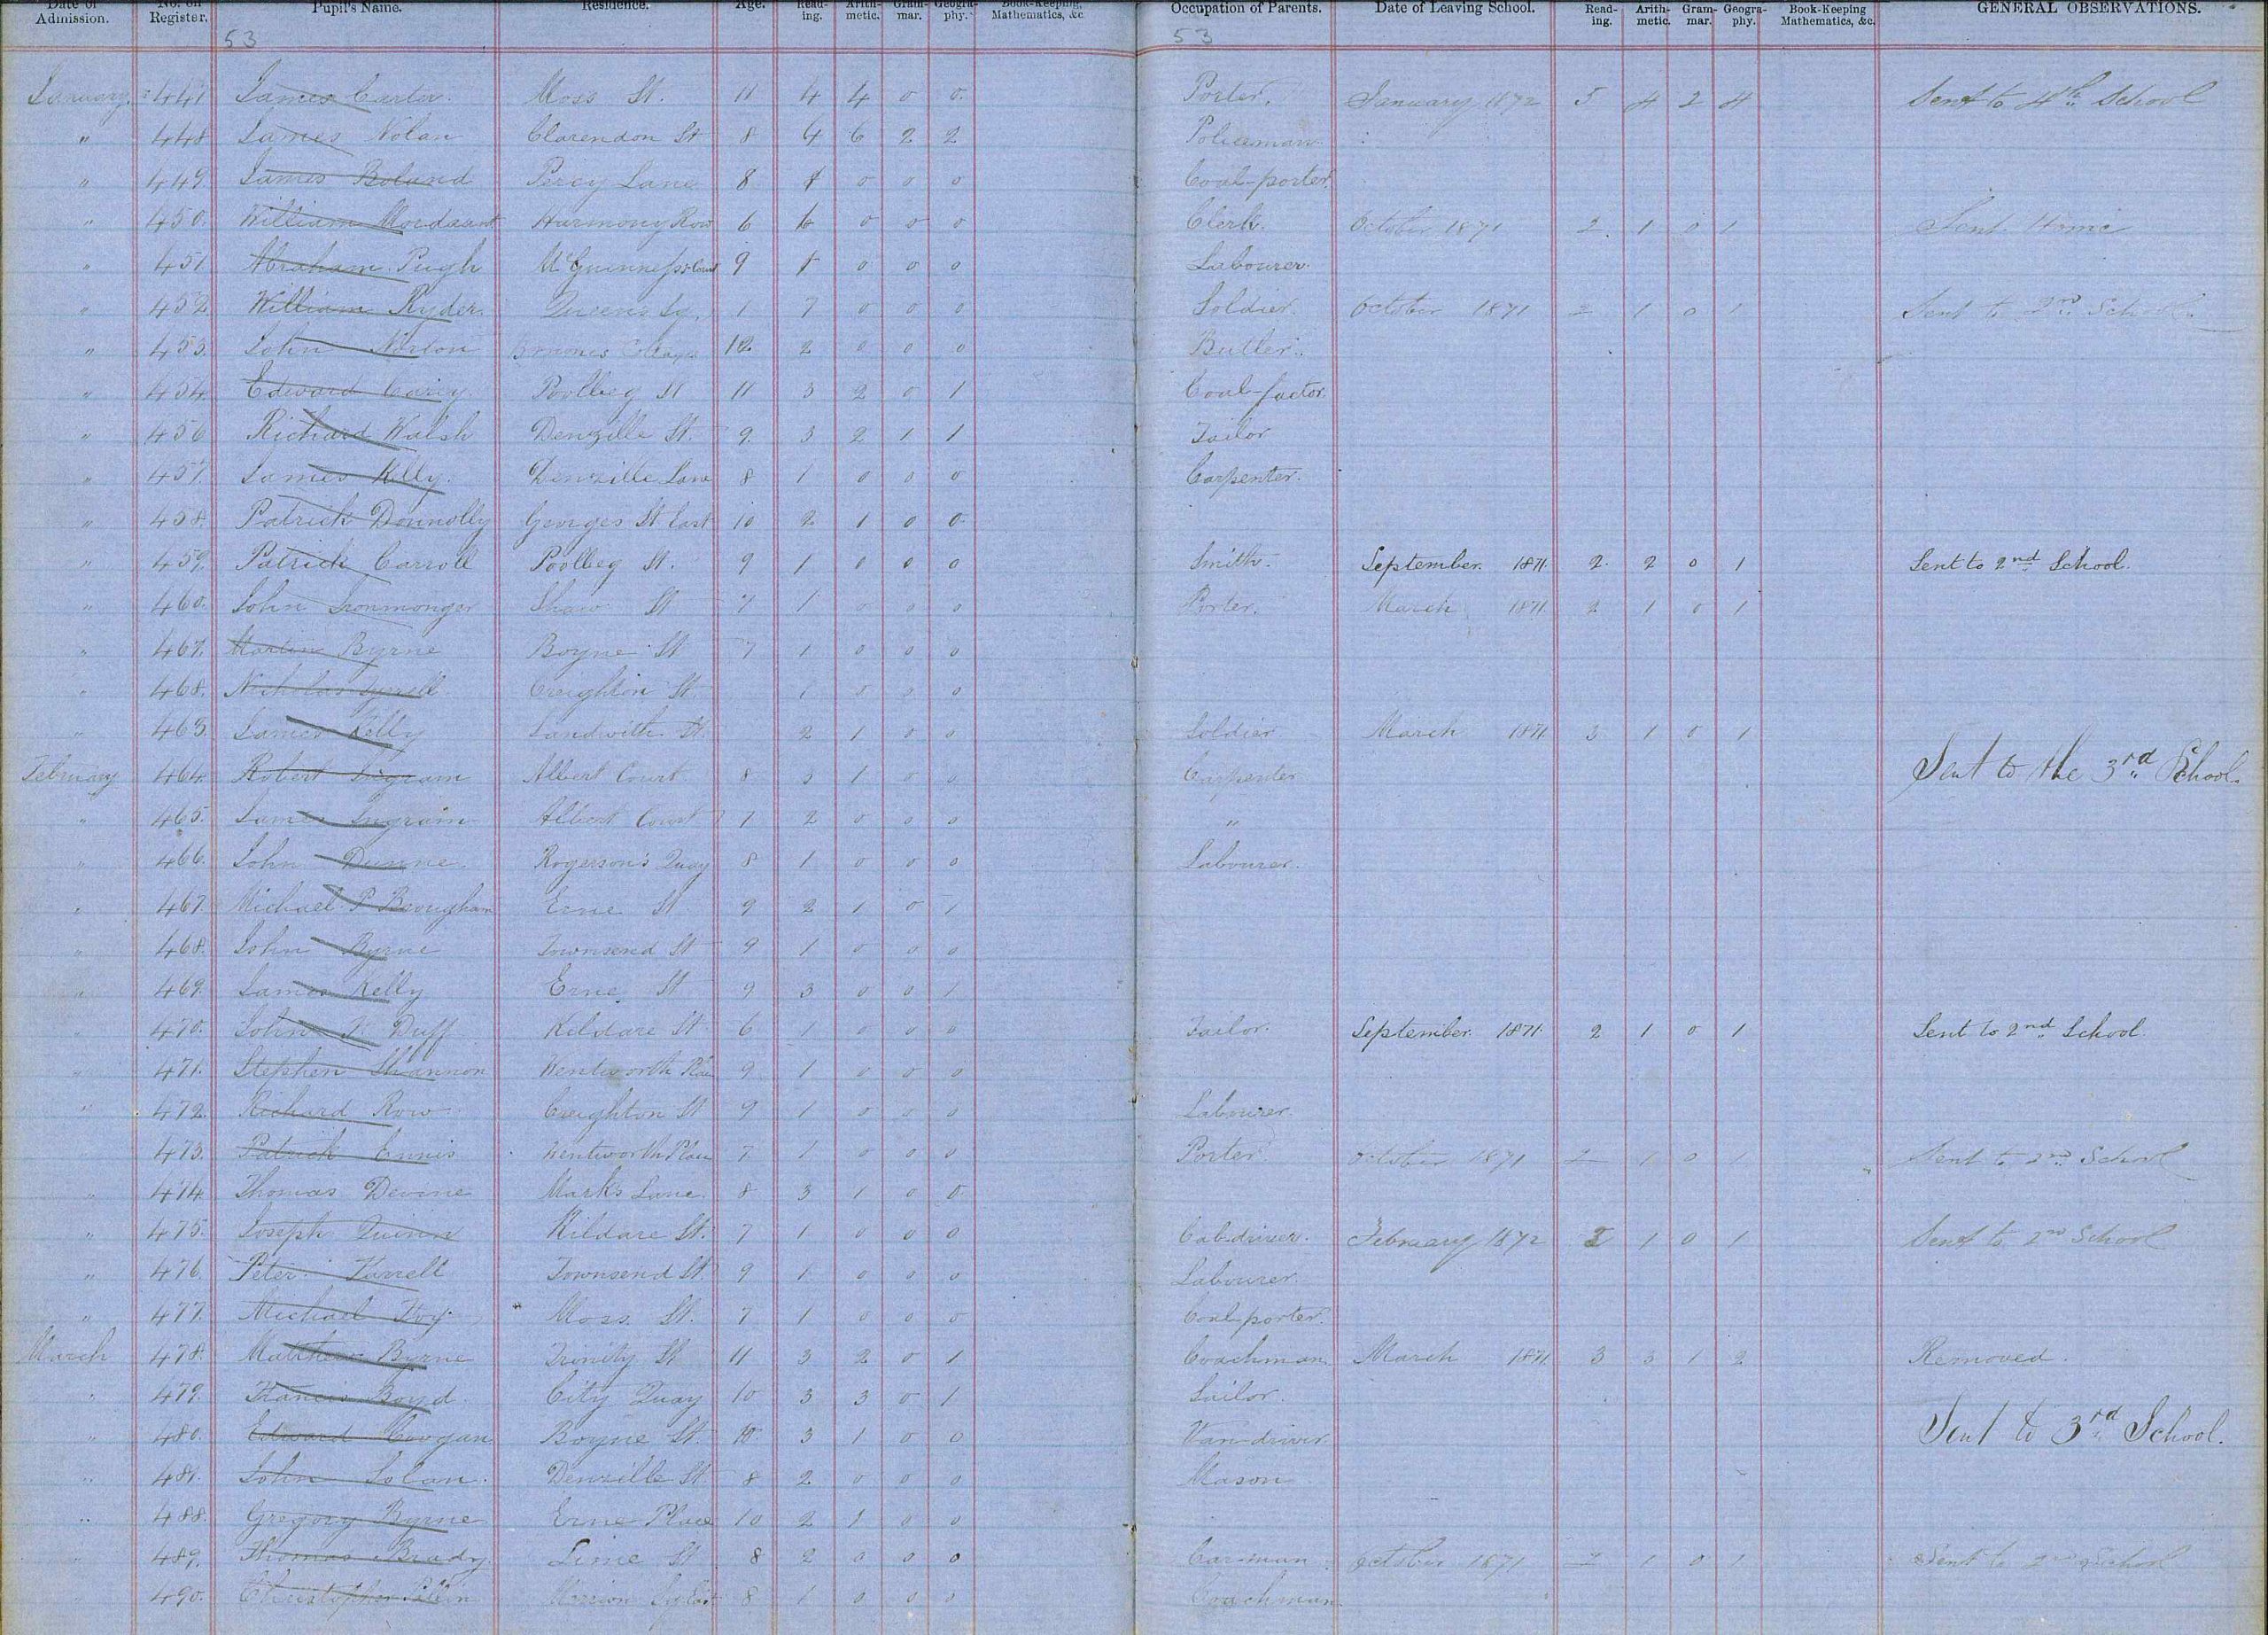 Date of Admission. No. on Register. Pupil's Name. Residence. Age. Read-ing. Arith-metic. Gram-mar. Geogra-phy. Book-Keeping, Mathematics, &c. Occupation of Parents. Date of Leaving School. Read-ing. Arith-metic. Gram-mar. Geogra-phy. Book-Keeping Mathematics, &c. GENERAL OBSERVATIONS.
53 53
January 447 James Carter. Moss St. 11 4 4 0 0. Porter. January 1872 5 4 2 4 Sent to 4th School
" 448 James Nolan Clarendon St 8 4 6 2 2 Policeman
" 449. James Boland Percy Lane 8 1 0 0 0 Coal-porter.
" 450. William Mordaunt Harmony Row 6 0 0 0 Clerk. October 1871 2. 1 0 1 Sent Home
" 451 Abraham Pugh McGuinness's Court 9 1 0 0 0 Labourer.
" 452 William Ryder. Queens Sq. 1 7 0 0 0 Soldier. October 1871 2 1 0 1 Sent to 2nd School.
" 453. John Norton Cottages 12 2 0 0 0 Butler.
" 454 Edward Carey. Poolbeg St 11 3 2 0 1 Coal-factor.
" 456 Richard Walsh Denzille St. 9. 3 2 1 1 Tailor
" 457. James Kelly. Denzille Lane 8 1 0 0 0 Carpenter.
" 458. Patrick Donnolly Georges St. East 10 2 1 0 0
" 459. Patrick Carroll Poolbeg St. 9 1 0 0 0 Smith. September. 1871. 2. 2 0 1 Sent to 2nd School.
" 460. John Ironmonger Shaw St 7 1 0 0 0 Porter. March 1871. 2 1 0 1
" 467. Martin Byrne Boyne St 7 1 0 0 0
" 468. Nicholas Tyrrell Creighton St 1 0 0 0
" 463. James Kelly Sandwith St. 2 1 0 0 Soldier March 1871. 3 1 0 1
February 464. Robert Ingram Albert Court 8 3 1 0 0 Carpenter Sent to the 3rd School.
" 465. James Ingram Albert Court 7 2 0 0 0 "
" 466. John Dunne Rogerson's Quay 8 1 0 0 0 Labourer.
" 467. Michael P Brougham Erne St 9 2 1 0 1
" 468. John Byrne Townsend St 9 1 0 0 0
" 469. James Kelly Erne St 9 3 0 0 1
" 470. John Duff Kildare St 6 1 0 0 0 Tailor. September. 1871. 2 1 0 1 Sent to 2nd School.
" 471. Stephen Shannon Wentworth Place 9 1 0 0 0
" 472. Richard Row Creighton St 9 1 0 0 0 Labourer.
" 473. Patrick Ennis Wentworth Place 7 1 0 0 0 Porter. October 1871 2 1 0 1 Sent to 2nd School
" 474. Thomas Devine Mark's Lane. 8 3 1 0 0
" 475. Joseph Quinn Kildare St. 7 1 0 0 0 Cab-driver. February 1872 1 0 1 Sent to 2nd School
" 476. Peter Farrell Townsend St. 9 1 0 0 0 Labourer.
" 477. Michael Foy Moss St. 7 1 0 0 0 Coal-porter.
March 478. Matthew Byrne Trinity St 11 3 2 0 1 Coachman. March 1871. 3 3 1 2 Removed.
" 479. Francis Boyd. City Quay 10 3 3 0 1 Sailor.
" 480. Edward Coogan Boyne St. 10 3 1 0 0 Van-driver. Sent to 3rd School.
" 481. John Dolan. Denzille St. 8 2 0 0 0 Mason
" 488. Gregory Byrne Erne Place 10 2 1 0 0
" 489. Thomas Brady. Lime St 8 2 0 0 0 Car-man October 1871 2 1 0 1 Sent to 2nd School
490. Christopher Merrion Sq East 8 1 0 0 0 Coachman.